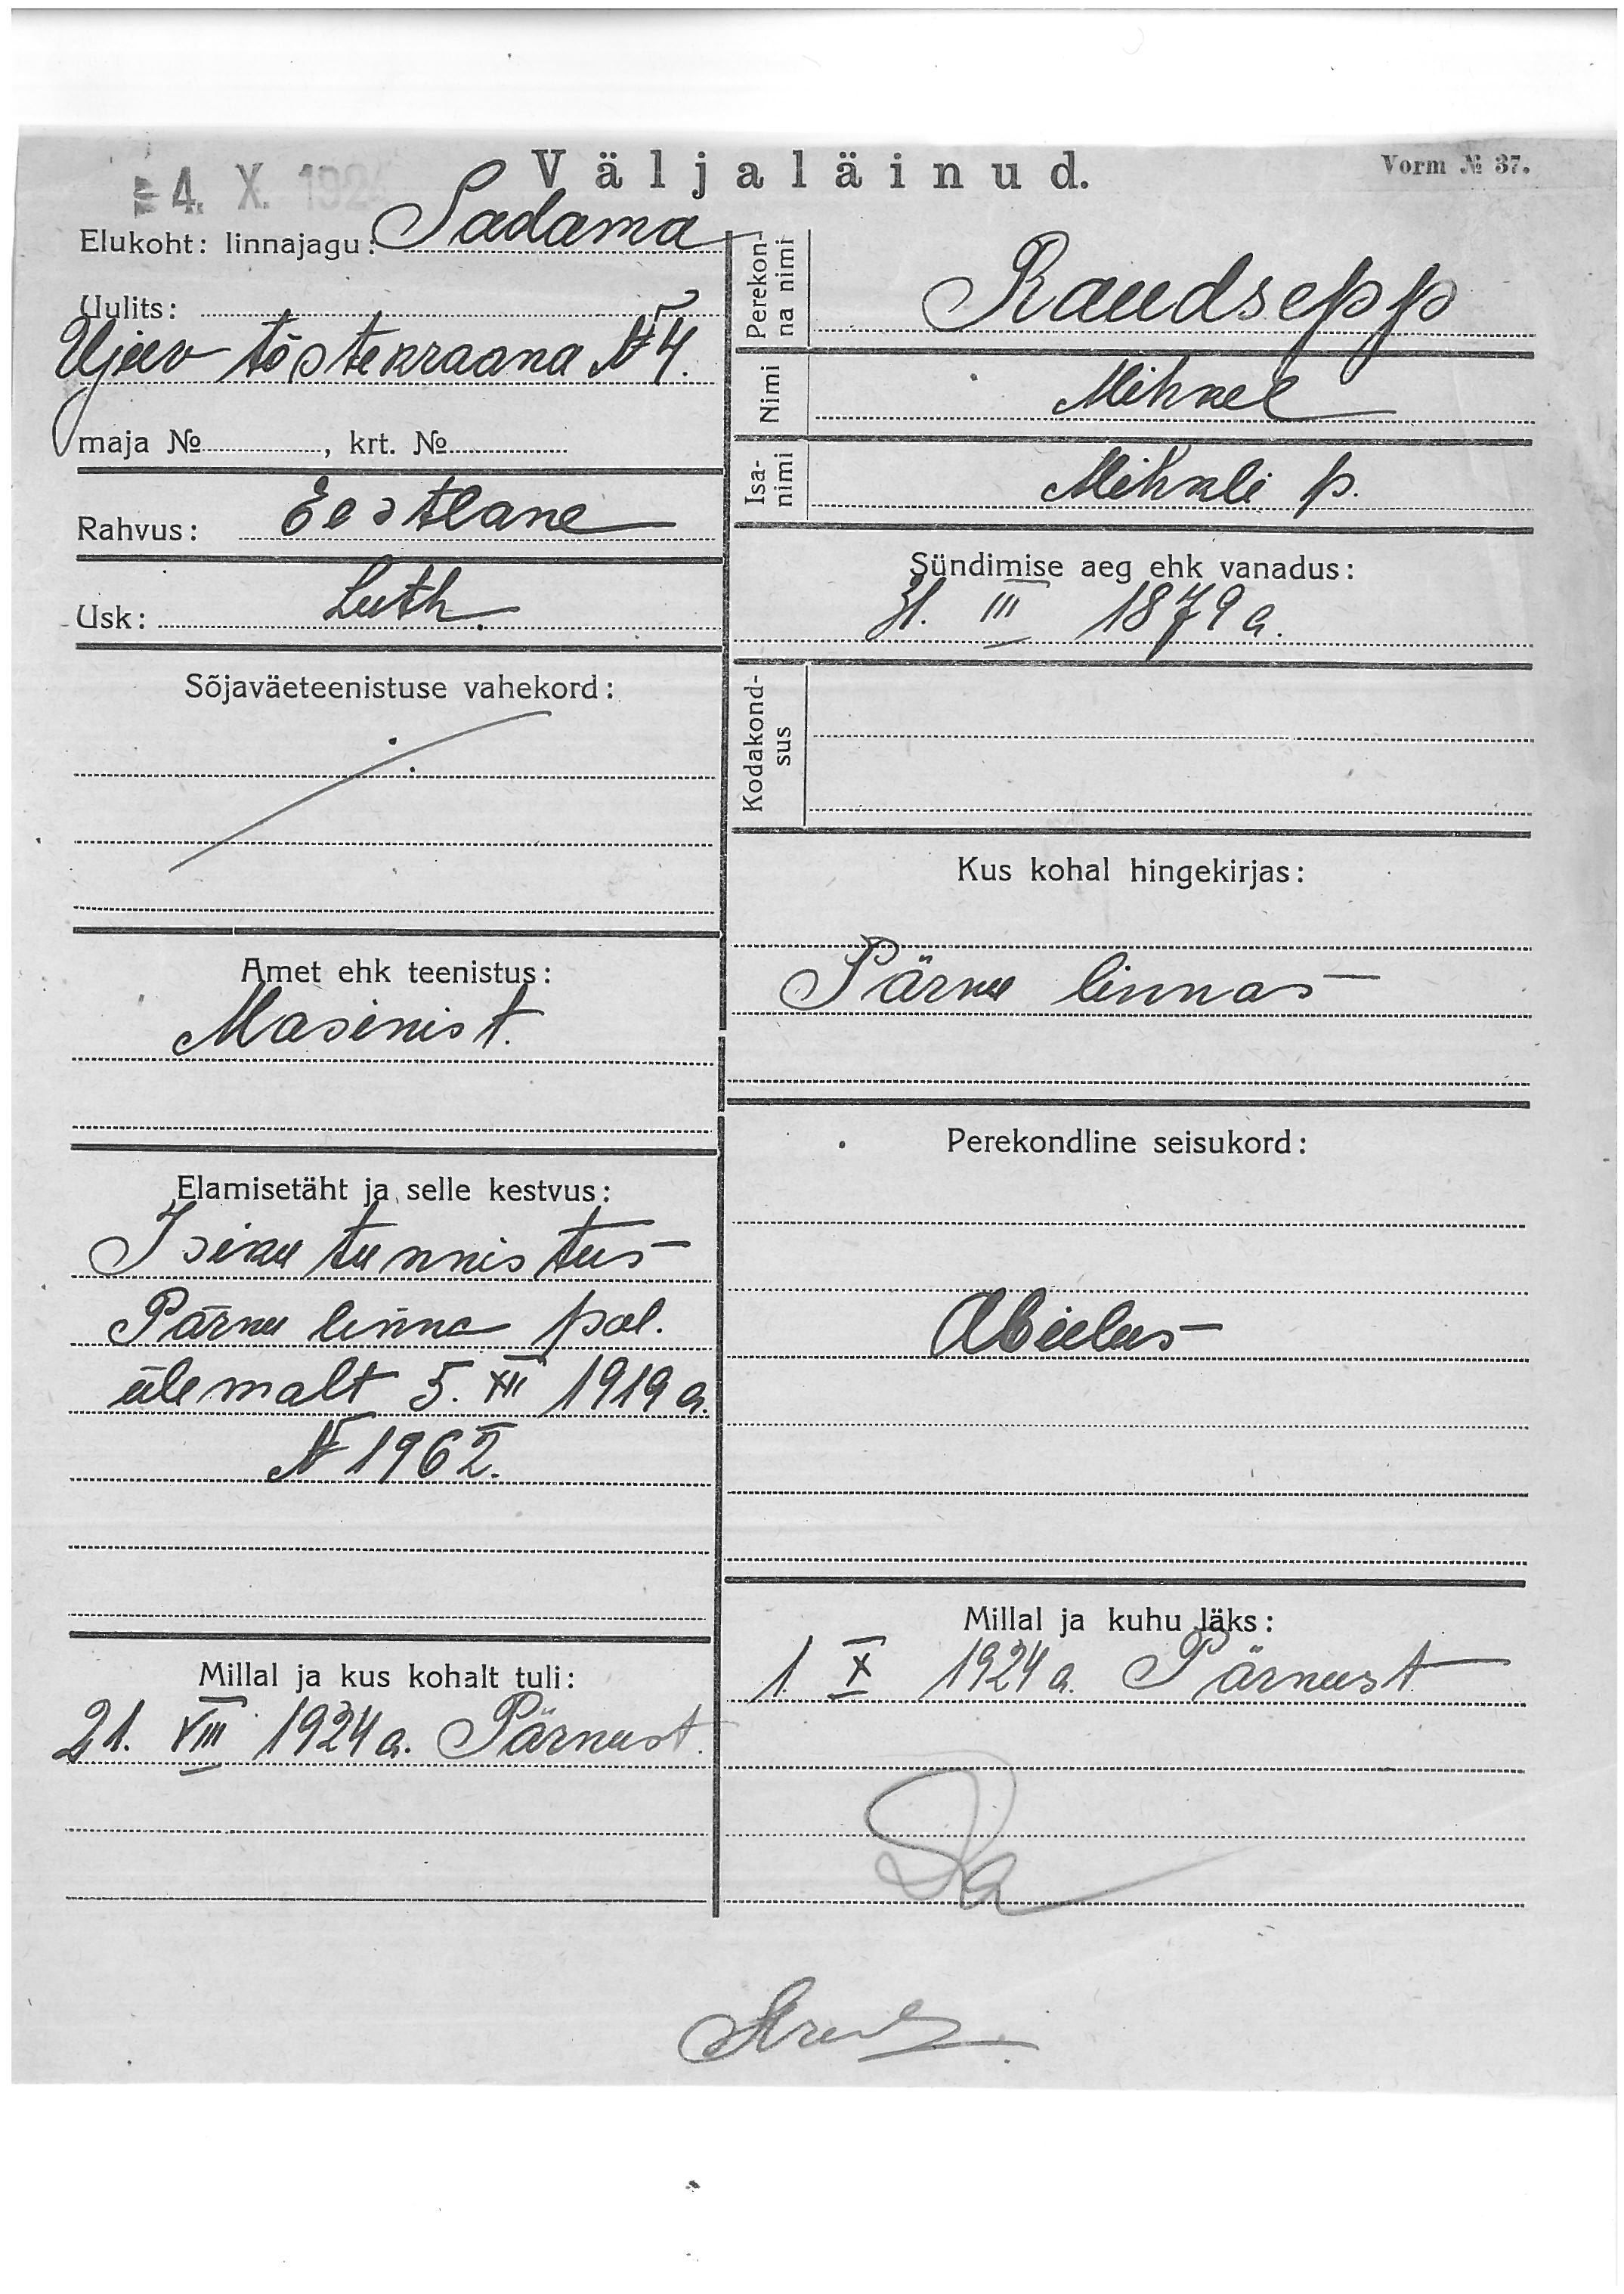 Väljaläinud.
Vorm № 37.
4. X. 192
Elukoht: linnajagu: Sadama
Uulits:
Ujuv tõstekraana № 4.
maja № , krt. №
Rahvus: Eestlane
Usk: Luth.
Sõjaväeteenistuse vahekord:
Amet ehk teenistus:
Masinist.
Elamisetäht ja selle kestvus:
Isiku tunnistus
Pärnu linna pol.
ülemalt 5. XII 1919 a.
№ 1962.
Millal ja kus kohalt tuli:
21. VIII 1924 a. Pärnust.
Perekon-
na nimi
Raudsepp
Nimi
Mihkel
Isa-
nimi
Mihkli p.
Sündimise aeg ehk vanadus:
31. III 1879 a.
Kodakond-
sus
Kus kohal hingekirjas:
Pärnu linnas
Perekondline seisukord:
Abielus
Millal ja kuhu läks:
1. X 1924 a. Pärnust